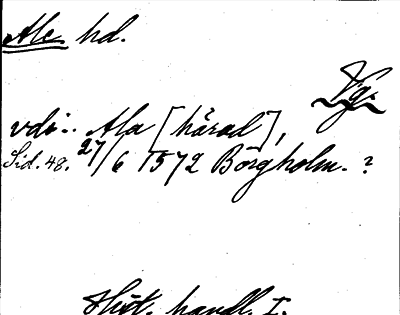 Ale hd.
Vg.
vdi.. Ala [härad],
Sid. 48. 27/6 1572 Borgholm. ?
Hist. handl. I.